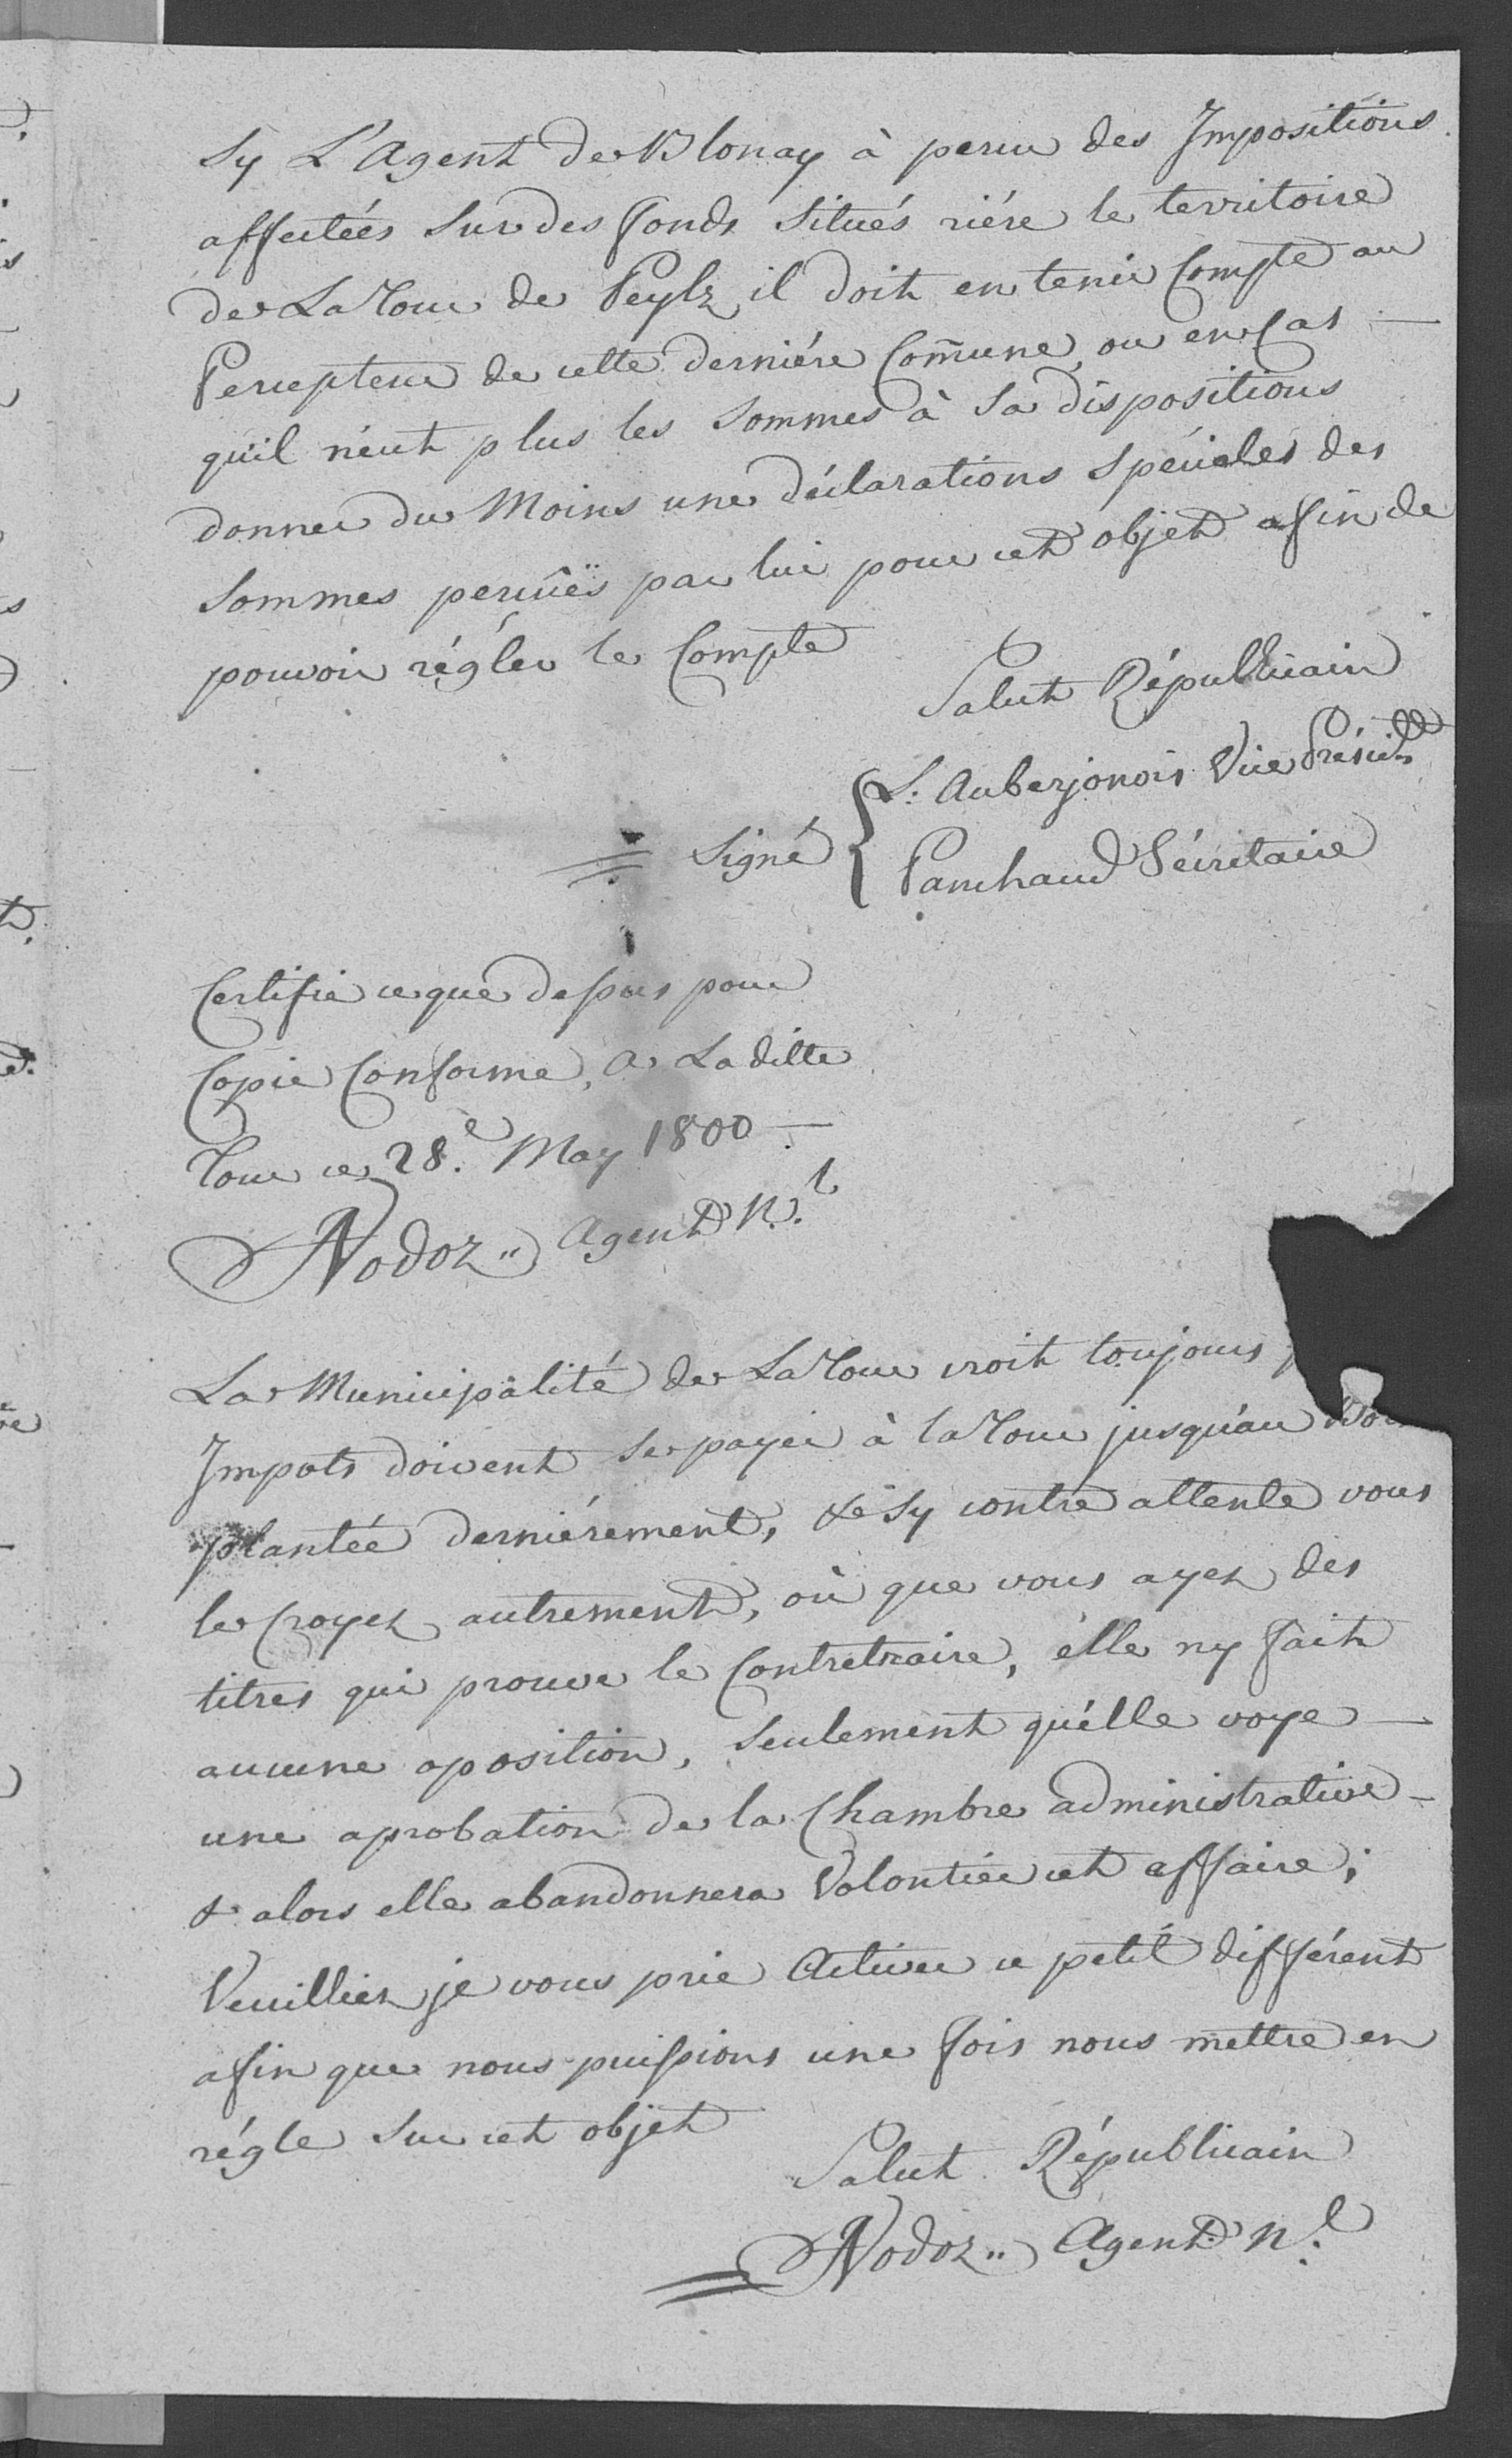 Sy L'Agent de Blonay à percu des Impositions
affectéés Sur des fonds Situés riére le territoire
de La Tour de Peylz, il doit en tenir Compte au
Percepteur de cette derniére Com̃une, ou en Cas —
qu'il n'eut plus les Sommes à Sa dispositions
donner du Moins une déclarations Spéciales des
Sommes percuës par lui pour cet objet afin de
pouvoir régler le Compte
Salut Républicain
L. Auberjonois Vice Présidt
Signé
Panchaud Sécrétaire
Certifie ce que dessus pour
Copie Conforme, a La ditte
Tour ce 28e. May 1800 —
Nodoz Agent N.l
La Municipalité de La Tour croit toujours
Impots doivent se payer à la Tour jusqu'au
plantée derniérement, & Sy contre attente vous
le Croyez autrement, où que vous ayez des
titres qui prouve le Contretraire, élle ny fait
aucune oposition, Seulement qu'élle voye —
une aprobation de la Chambre administrative —
& alors elle abandonnera Volontier cet affaire;
Veuilliez je vous prie Activer ce petit différent
afin que nous puissions une fois nous mettre en
régle Sur cet objet
Salut Républicain
Nodoz Agent N.l